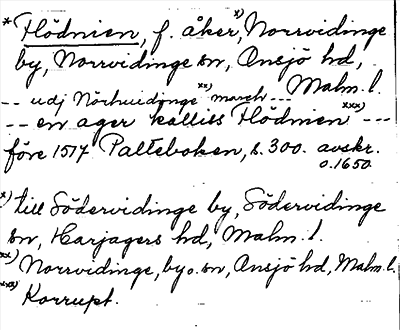 * Flödnien, f. åker, x) Norrvidinge
by, Norrvidinge sn, Onsjö hd,
Malm. l.
-- udj Nörhuidinge xx) march ---
-- en ager kalliss Flödnien xxx) ---
före 1517 Palteboken, s. 300. avskr.
o. 1650.
x) till Södervidinge by, Södervidinge
sn, Harjagers hd, Malm. l.
xx) Norrvidinge, by o. sn, Onsjö hd, Malm. l.
xxx) Korrupt.